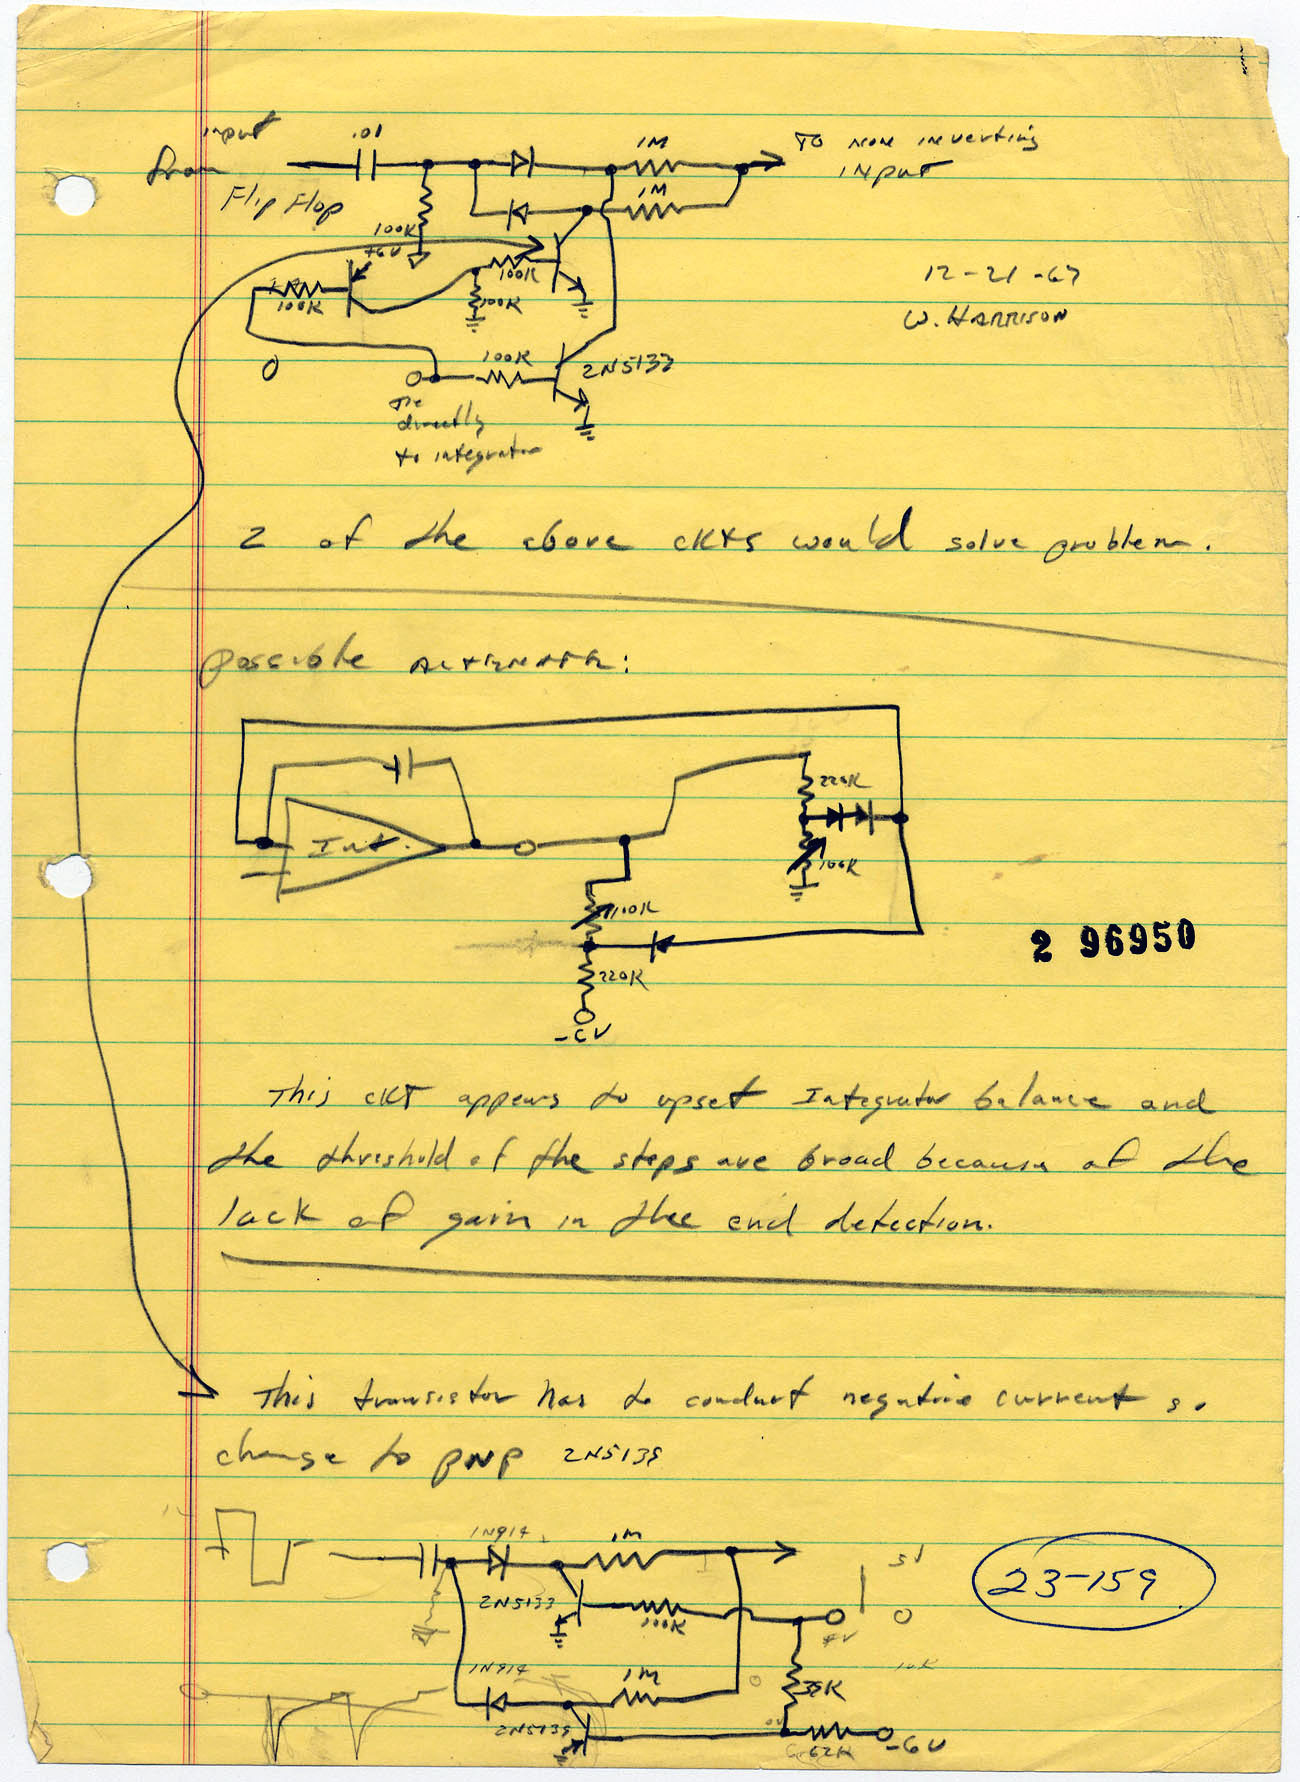 input
.01
1M
TO non inverting
from
INPUT
Flip Flop
1M
100K
+6V
100K
12-21-67
100K
100K
W. HARRISON
100K
2N5133
0
Tie
directly
to integrator
2 of the above ckts would solve problem.
possible ALTERNATE:
220K
Int.
100K
100K
2 96950
220K
-6V
This ckt appears to upset Integrator balance and
the threshold of the steps are broad because of the
lack of gain in the end detection.
This transistor has to conduct negative current so
change to PNP 2N5139
1N914
1M
5V
23-159
2N5133
100K
0
1N914
1M
10K
39K
2N5139
0V
62K
-6V